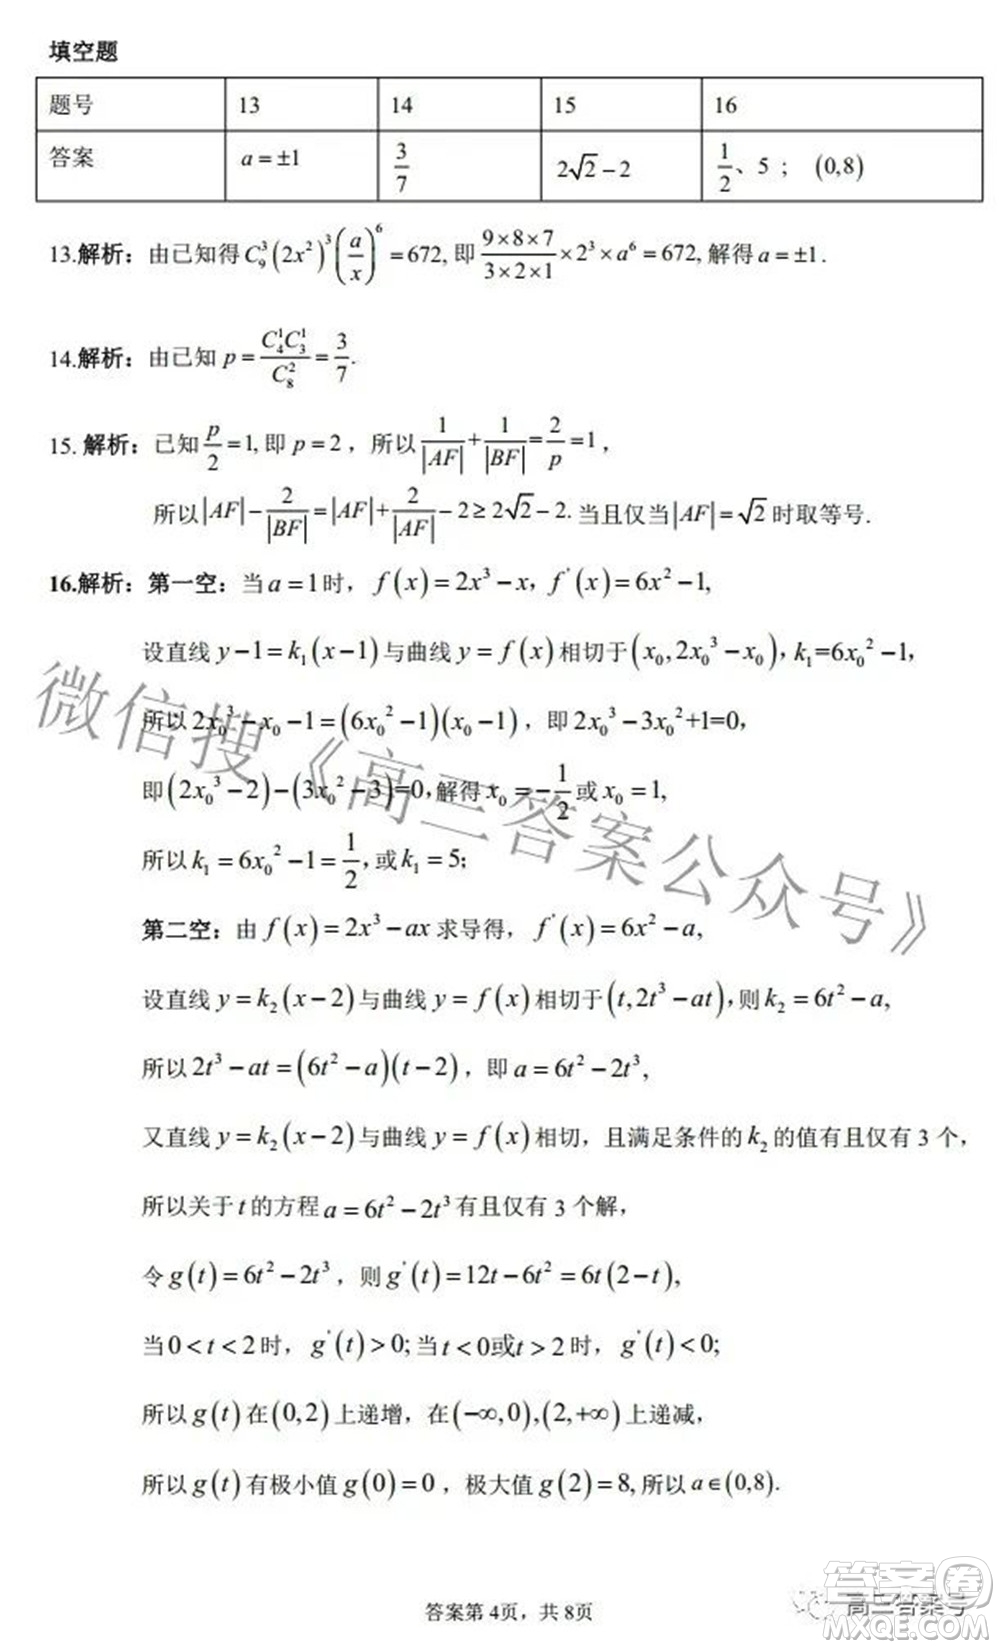 填空题
题号 13 14 15 16
答案 a=±1 3/7 2√2-2 1/2、5；(0,8)
13.解析：由已知得 C₉³(2x²)³(a/x)⁶=672, 即 (9×8×7)/(3×2×1)×2³×a⁶=672, 解得 a=±1.
14.解析：由已知 p=C₄¹C₃¹/C₈²=3/7.
15. 解析：已知 p/2=1, 即 p=2，所以 1/|AF|+1/|BF|=2/p=1，
所以|AF|-2/|BF|=|AF|+2/|AF|-2≥2√2-2. 当且仅当|AF|=√2 时取等号.
16.解析：第一空：当 a=1时，f(x)=2x³-x，f'(x)=6x²-1,
设直线 y-1=k₁(x-1)与曲线 y=f(x)相切于(x₀,2x₀³-x₀)，k₁=6x₀²-1,
所以 2x₀³-x₀-1=(6x₀²-1)(x₀-1)，即 2x₀³-3x₀²+1=0,
即(2x₀³-2)-(3x₀²-3)=0,解得 x₀=-1/2 或 x₀=1,
所以 k₁=6x₀²-1=1/2，或 k₁=5;
第二空：由 f(x)=2x³-ax 求导得，f'(x)=6x²-a,
设直线 y=k₂(x-2)与曲线 y=f(x)相切于(t,2t³-at)，则 k₂=6t²-a,
所以 2t³-at=(6t²-a)(t-2)，即 a=6t²-2t³,
又直线 y=k₂(x-2)与曲线 y=f(x)相切，且满足条件的 k₂ 的值有且仅有 3 个，
所以关于 t 的方程 a=6t²-2t³ 有且仅有 3 个解，
令 g(t)=6t²-2t³，则 g'(t)=12t-6t²=6t(2-t),
当 0<t<2 时，g'(t)>0; 当 t<0或t>2 时，g'(t)<0;
所以 g(t)在(0,2)上递增，在(-∞,0),(2,+∞)上递减，
所以 g(t)有极小值 g(0)=0，极大值 g(2)=8, 所以 a∈(0,8).
微信搜《高三答案公众号》
答案第 4页，共 8页
高三答案号
答案卷
MXQE.COM